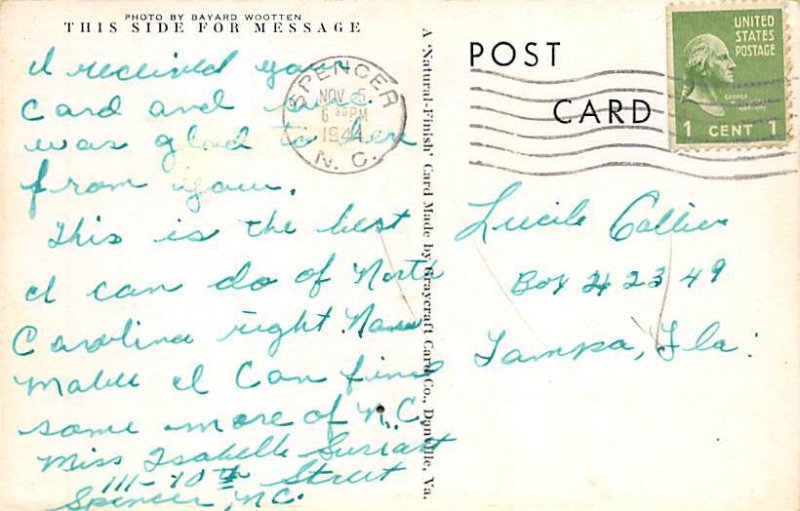 PHOTO BY BAYARD WOOTTEN
THIS SIDE FOR MESSAGE
I received your
card and
was glad to her
from your.
This is the best
I can do of North
Carolina right Now
I can find
some more of N.C.
Miss Isabelle
111-10th Street
Spencer, N.C.
SPENCER
NOV 5
6 30 PM
194
N. C.
A 'Natural-Finish' Card Made by Graycraft Card Co., Danville, Va.
POST
CARD
UNITED
STATES
POSTAGE
1 CENT 1
Lucile Collier
Box # 2349
Tampa, Fla.